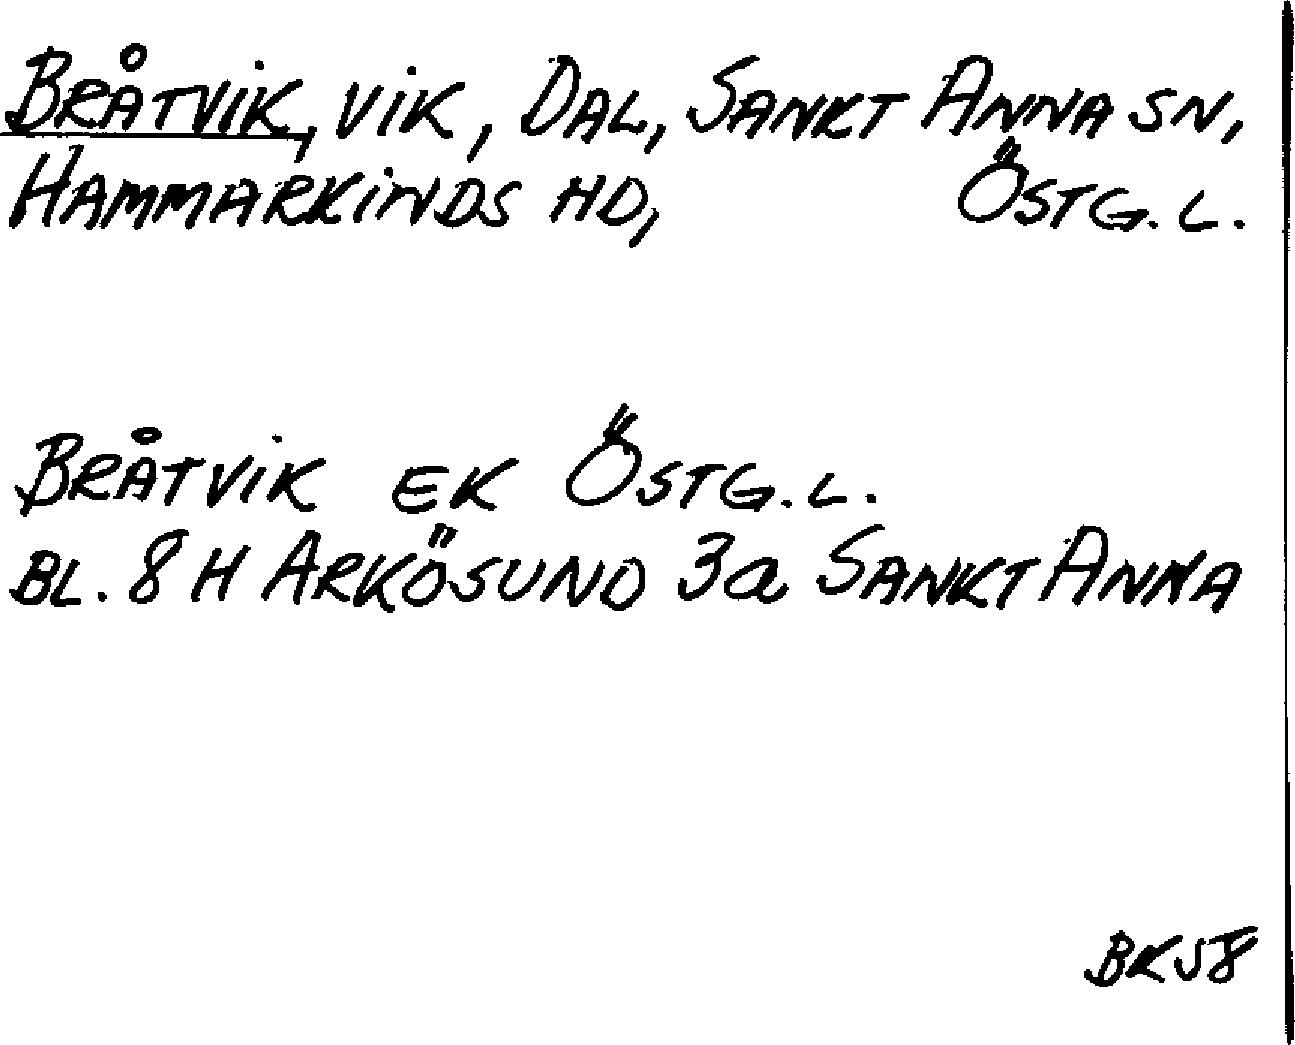 BRÅTVIK, VIK, DAL, SANKT ANNA SN,
HAMMARKINDS HD, ÖSTG. L.
BRÅTVIK EK ÖSTG. L.
BL. 8 H ARKÖSUND 3a SANKT ANNA
BK58